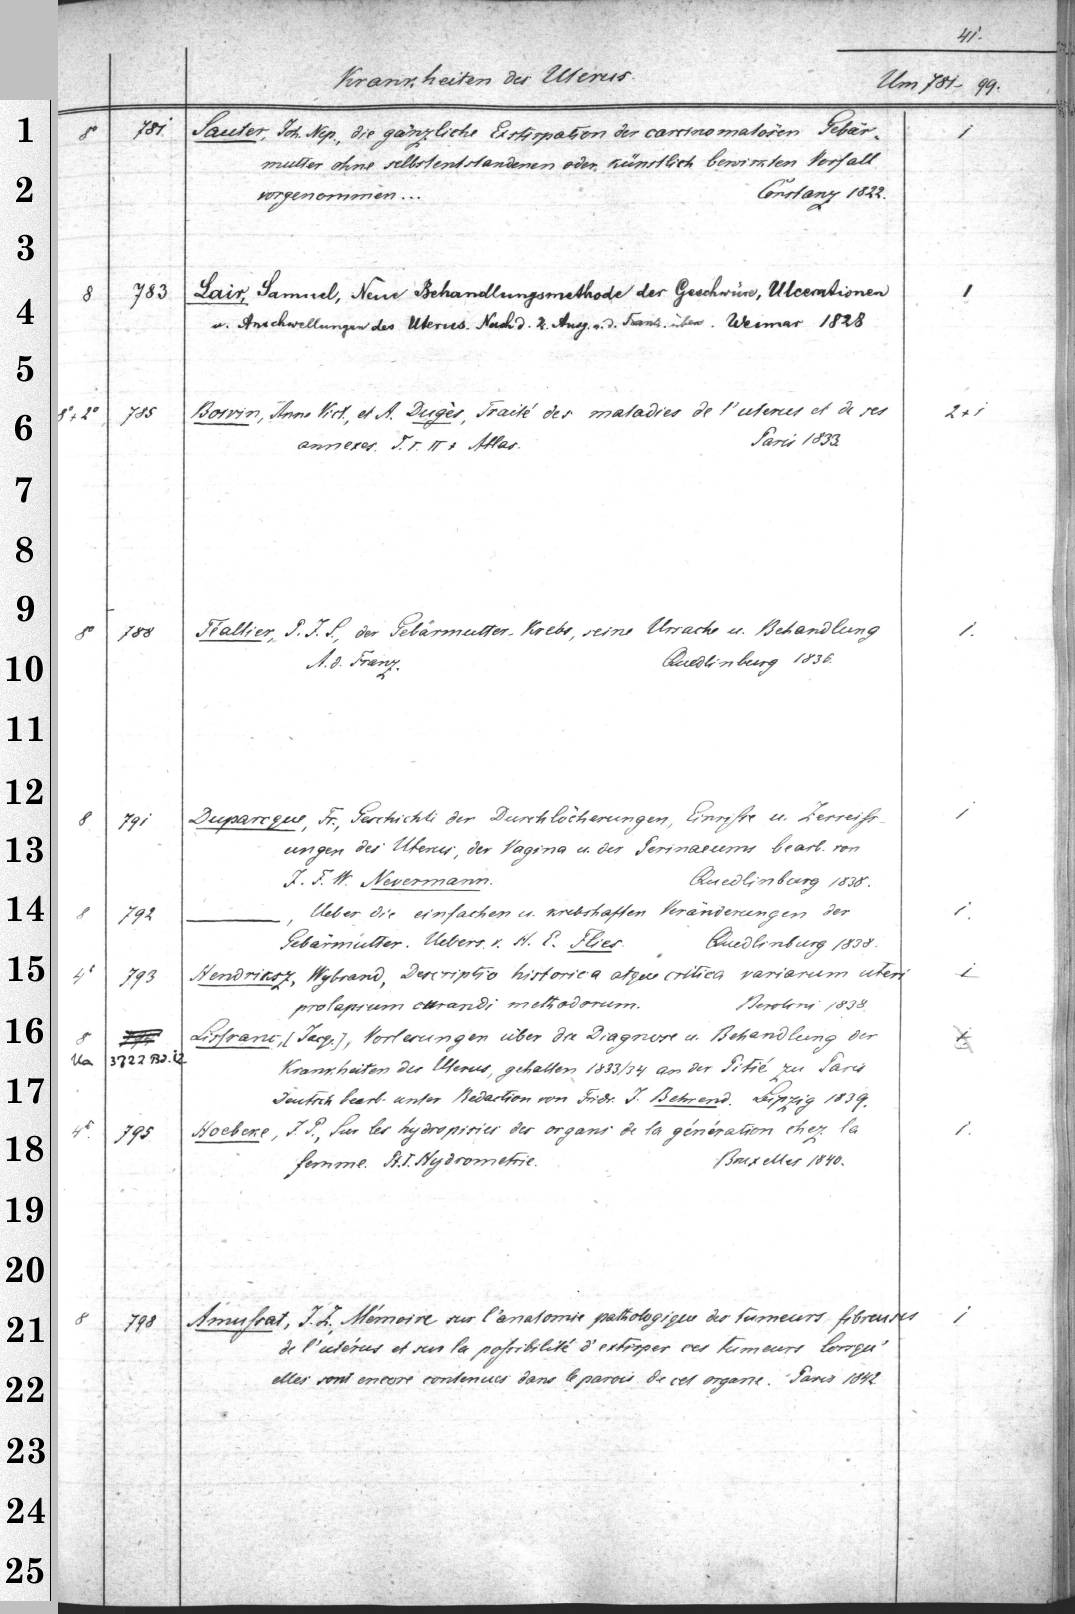 41.
Krankheiten des Uterus.
Um 781- 99.
8° 781 Sauter, Joh. Nep., die gänzliche Exstirpation der carcinomatösen Gebär- 1
mutter ohne selbstentstandenen oder künstlich bewirkten Vorfall
vorgenommen... Constanz 1822.
8 783 Lair, Samuel, Neue Behandlungsmethode der Geschwüre, Ulcerationen 1
u. Anschwellungen des Uterus. Nach d. 2. Ausg. a. d. Franz. übers. Weimar 1828
8°+2° 785 Boivin, Anne Vict., et A. Dugès, Traité des maladies de l'uterus et de ses 2+1
annexes. T. I. II + Atlas. Paris 1833.
8° 788 Téallier, P. J. S., der Gebärmutter-Krebs, seine Ursache u. Behandlung 1.
A. d. Franz. Quedlinburg 1836.
8 791 Duparcque, Fr., Geschichte der Durchlöcherungen, Einrisse u. Zerreiss- 1
ungen des Uterus, der Vagina u. des Perinaeums bearb. von
J. F. W. Nevermann. Quedlinburg 1838.
8 792 ———, Ueber die einfachen u. krebshaften Veränderungen der 1.
Gebärmutter. Uebers. v. H. E. Flies. Quedlinburg 1838.
4° 793 Hendriksz, Wybrand, Descriptio historica atque critica variarum uteri 1
prolapsum curandi methodorum. Berolini 1838.
8 Lisfranc, [Jacq.], Vorlesungen über die Diagnose u. Behandlung der 1
Ua 3722 Bd. 12 Krankheiten des Uterus, gehalten 1833/34 an der Pitié zu Paris
Deutsch bearb. unter Redaction von Fridr. J. Behrend. Leipzig 1839.
4° 795 Hoebeke, J. P., Sur les hydropisies des organs de la génération chez la 1.
femme. Pt. I. Hydrometrie. Bruxelles 1840.
8 798 Amussat, J. Z., Mémoire sur l'anatomie pathologique des tumeurs fibreuses 1
de l'utérus et sur la possibilité d'extirper ces tumeurs lorsqu'
elles sont encore contenues dans le parois de cet organe. Paris 1842
1
2
3
4
5
6
7
8
9
10
11
12
13
14
15
16
17
18
19
20
21
22
23
24
25